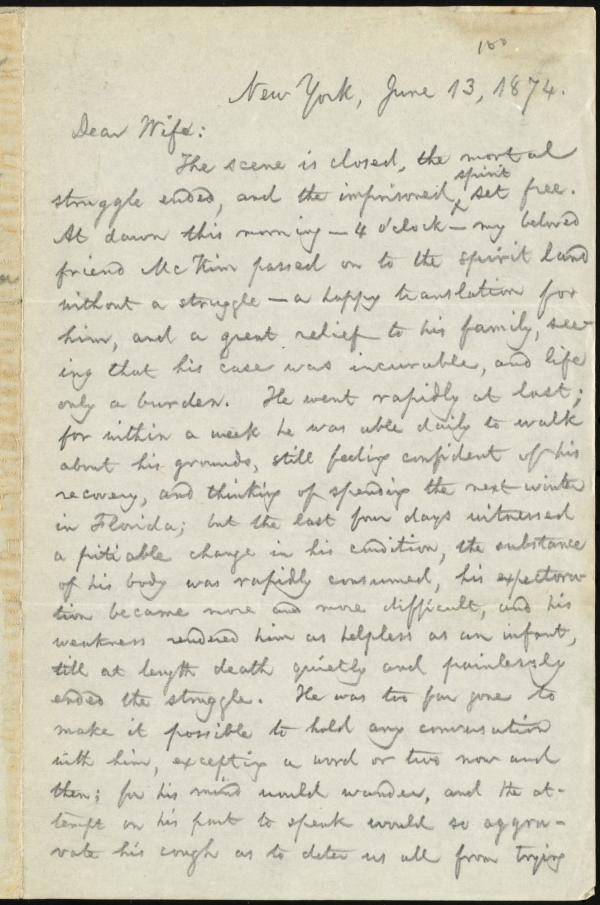 160
New York, June 13, 1874.
Dear Wife:
The scene is closed, the mortal
spirit
struggle ended, and the imprisoned ^ set free.
At dawn this morning — 4 o'clock — my beloved
friend McKim passed on to the spirit land
without a struggle — a happy translation for
him, and a great relief to his family, see-
ing that his case was incurable, and life
only a burden. He went rapidly at last;
for within a week he was able daily to walk
about his grounds, still feeling confident of his
recovery, and thinking of spending the next winter
in Florida; but the last four days witnessed
a pitiable change in his condition, the substance
of his body was rapidly consumed, his expectora-
tion became more and more difficult, and his
weakness rendered him as helpless as an infant,
till at length death quietly and painlessly
ended the struggle. He was too far gone to
make it possible to hold any conversation
with him, excepting a word or two now and
then; for his mind would wander, and the at-
tempt on his part to speak would so aggra-
vate his cough as to deter us all from trying